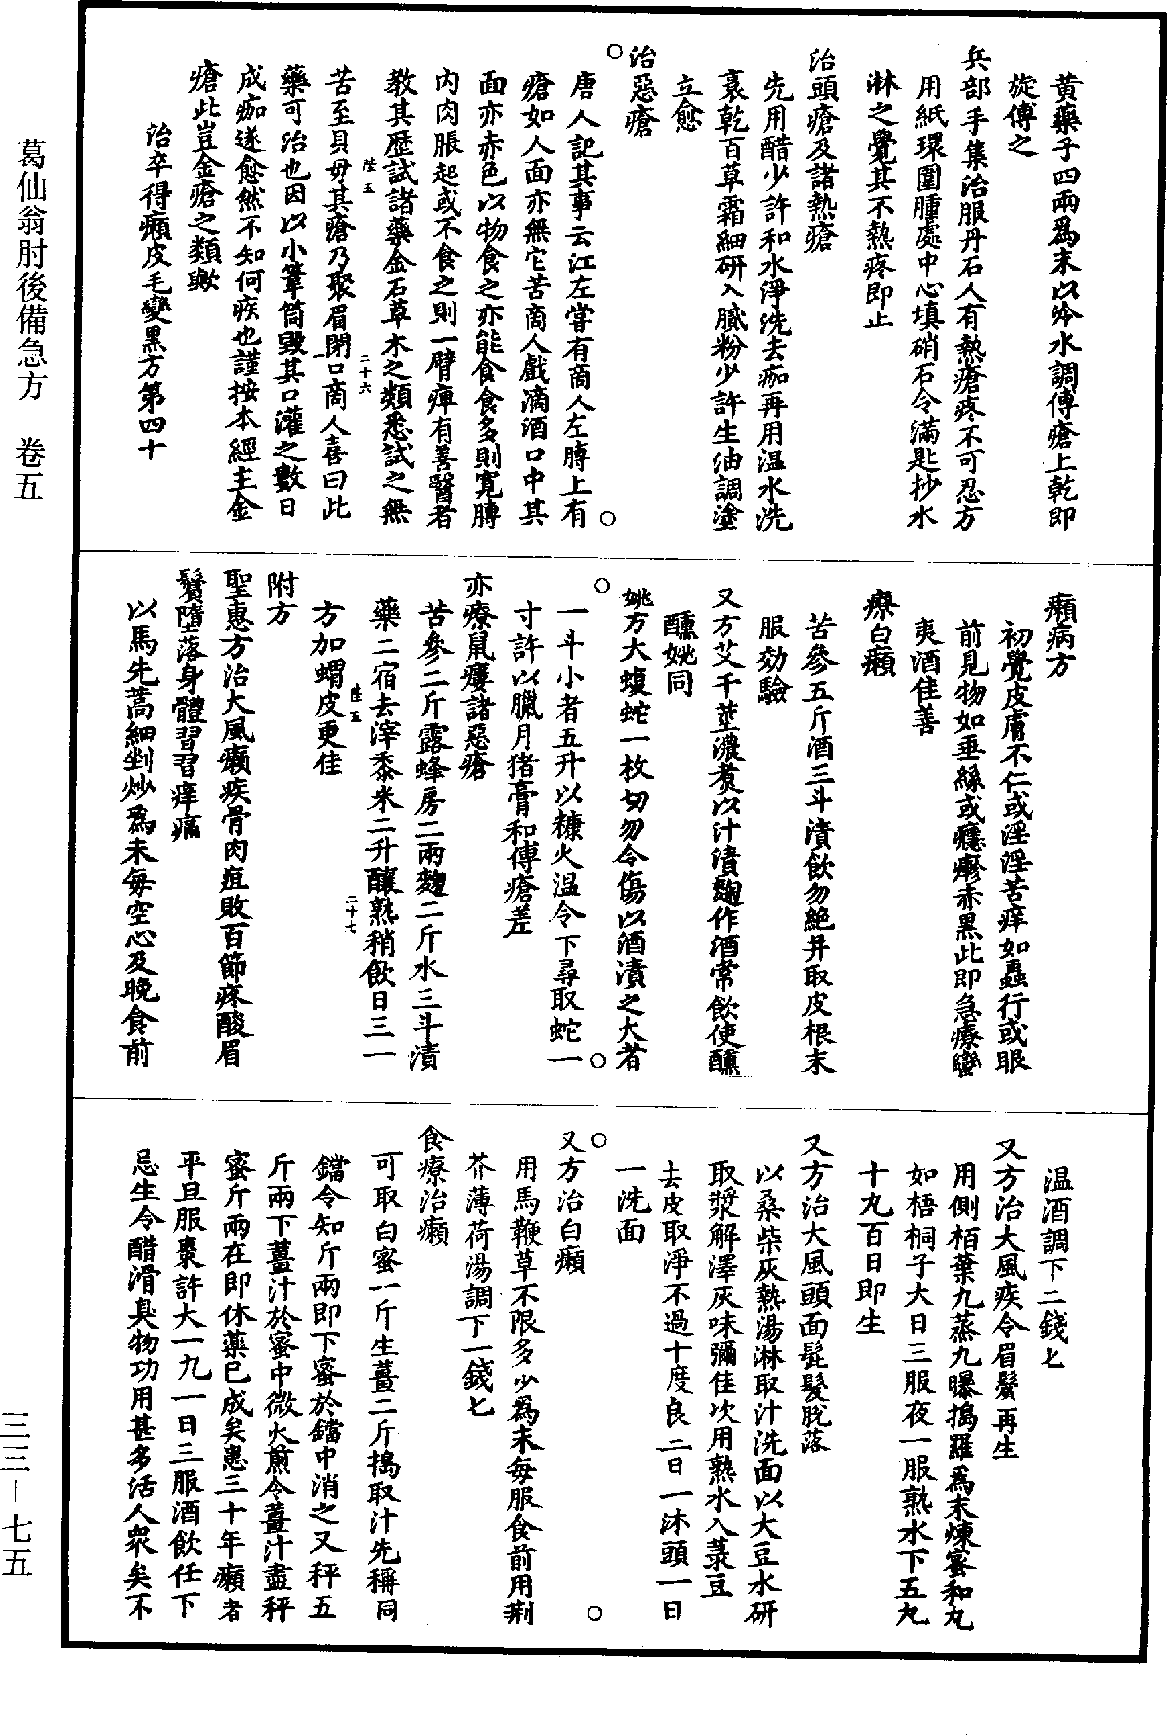 黃藥子四兩爲末以冷水調傅瘡上乾即
旋傅之
兵部手集治服丹石人有熱瘡疼不可忍方
用紙環圍腫處中心填硝石令滿匙抄水
淋之覺其不熱疼即止
治頭瘡及諸熱瘡
先用醋少許和水淨洗去痂再用温水洗
裛乾百草霜細研入膩粉少許生油調塗
立愈
治惡瘡
唐人記其事云江左嘗有商人左膊上有
瘡如人面亦無它苦商人戲滴酒口中其
面亦赤色以物食之亦能食食多則寬膊
内肉脹起或不食之則一臂痺有善醫者
教其歷試諸藥金石草木之類悉試之無
陸五
二十六
苦至貝母其瘡乃聚眉閉口商人喜曰此
藥可治也因以小葦筒毀其口灌之數日
成痂遂愈然不知何疾也謹按本經主金
瘡此豈金瘡之類歟
治卒得癩皮毛變黑方第四十
癩病方
初覺皮膚不仁或淫淫苦痒如蟲行或眼
前見物如垂絲或癮瘮赤黑此即急療蠻
夷酒佳善
療白癩
苦參五斤酒三斗漬飲勿絶并取皮根末
服効驗
又方艾千莖濃煮以汁漬麴作酒常飲使醺
醺姚同
姚方大蝮蛇一枚切勿令傷以酒漬之大者
一斗小者五升以糠火温令下尋取蛇一
寸許以臘月猪膏和傅瘡差
亦療鼠瘻諸惡瘡
苦參二斤露蜂房二兩麴二斤水三斗漬
藥二宿去滓黍米二升釀熟稍飲日三一
陸五
二十七
方加蝟皮更佳
附方
聖惠方治大風癩疾骨肉疽敗百節疼酸眉
鬢墮落身體習習痒痛
以馬先蒿細剉炒爲末每空心及晚食前
温酒調下二錢匕
又方治大風疾令眉鬢再生
用側栢葉九蒸九曝搗羅爲末煉蜜和丸
如梧桐子大日三服夜一服熟水下五丸
十丸百日即生
又方治大風頭面髭髮脱落
以桑柴灰熱湯淋取汁洗面以大豆水研
取漿解澤灰味彌佳次用熟水入菉豆
去皮取淨不過十度良二日一沐頭一日
一洗面
又方治白癩
用馬鞭草不限多少爲末每服食前用荆
芥薄荷湯調下一錢匕
食療治癩
可取白蜜一斤生薑二斤搗取汁先稱同
鐺令知斤兩即下蜜於鐺中消之又秤五
斤兩下薑汁於蜜中微火煎令薑汁盡秤
蜜斤兩在即休藥巳成矣患三十年癩者
平旦服棗許大一丸一日三服酒飲任下
忌生令醋滑臭物功用甚多活人衆矣不
葛仙翁肘後備急方 卷五
三三－七五